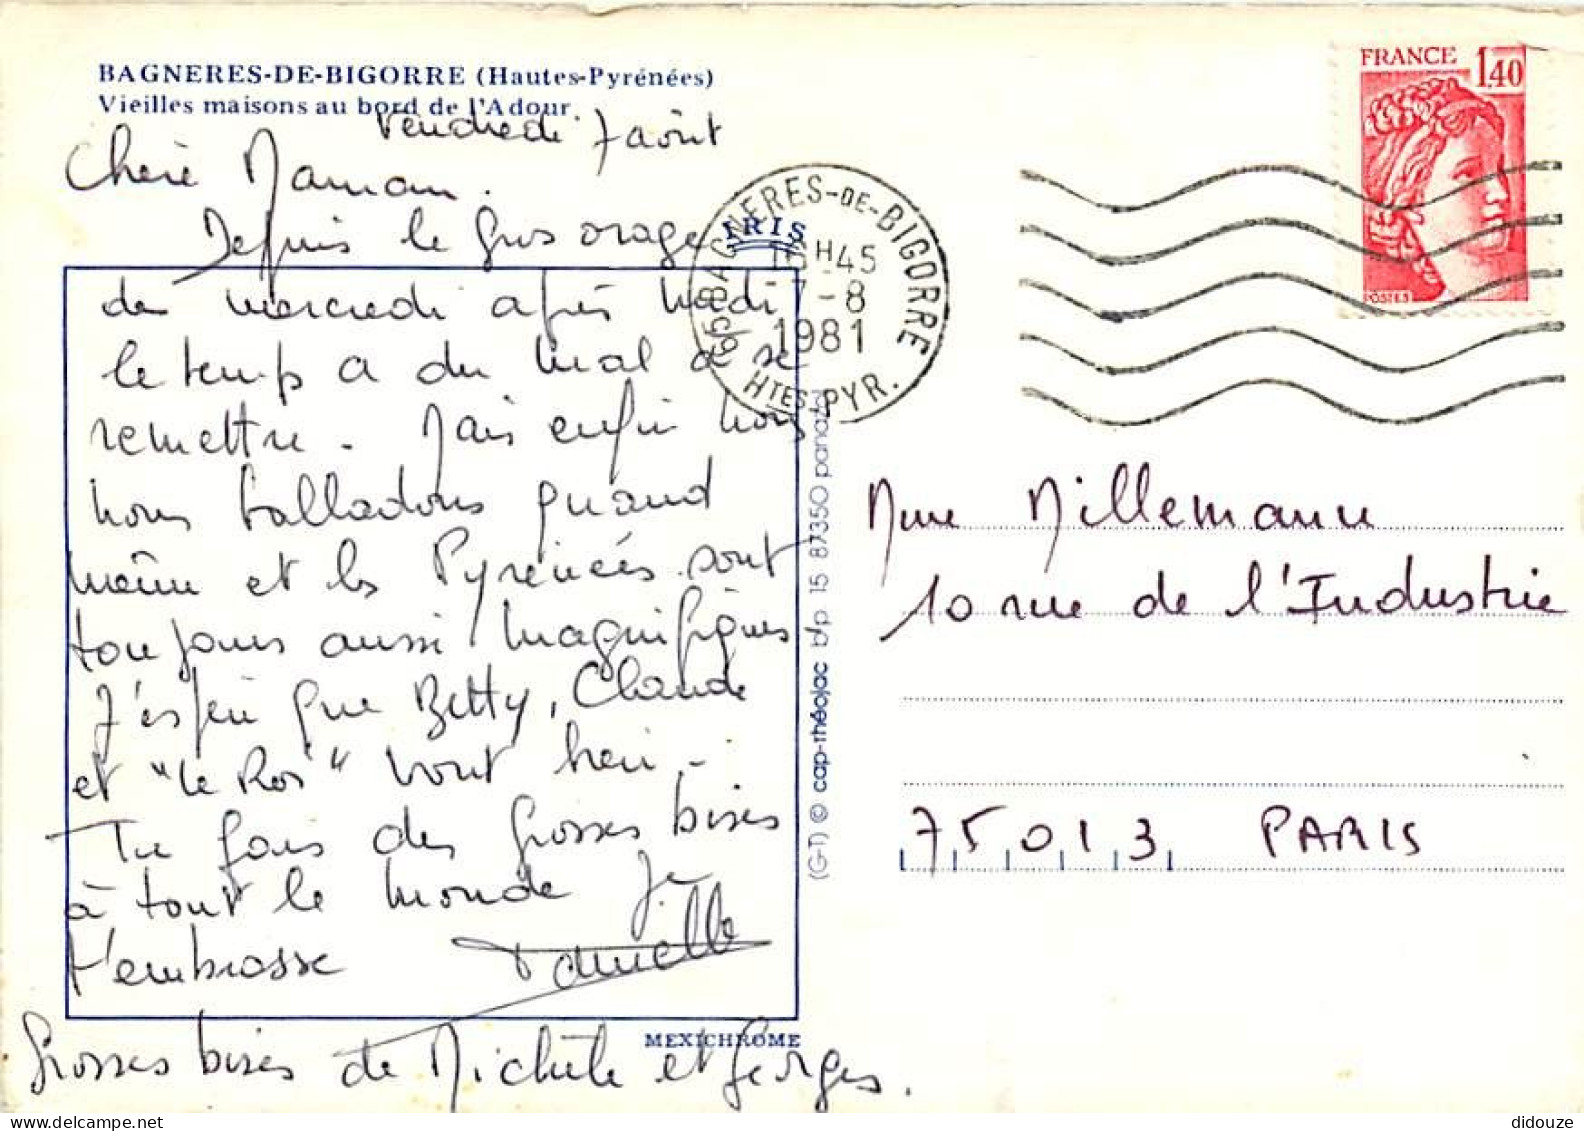 BAGNERES-DE-BIGORRE (Hautes-Pyrénées)
Vieilles maisons au bord de l'Adour
Vendredi 7 août
Chère Maman.
Depuis le gros orage
de mercredi après midi
le temps a du mal à se
remettre. Mais enfin nous
nous balladons quand
même et les Pyrénées sont
toujours aussi magnifiques
J'espère que Betty, Claude
et "le Roi" vont bien.
Tu fais des grosses bises
à tout le monde Je
t'embrasse Danielle
Grosses bises de Michèle et Georges.
IRIS
MEXICHROME
(G-T) © cap-théojac bp 15 87350 panazol
65 BAGNERES-DE-BIGORRE
H45
7-8
1981
HTES PYR.
FRANCE 1,40
POSTES
Mme Millemann
10 rue de l'Industrie
75013 PARIS
didouze